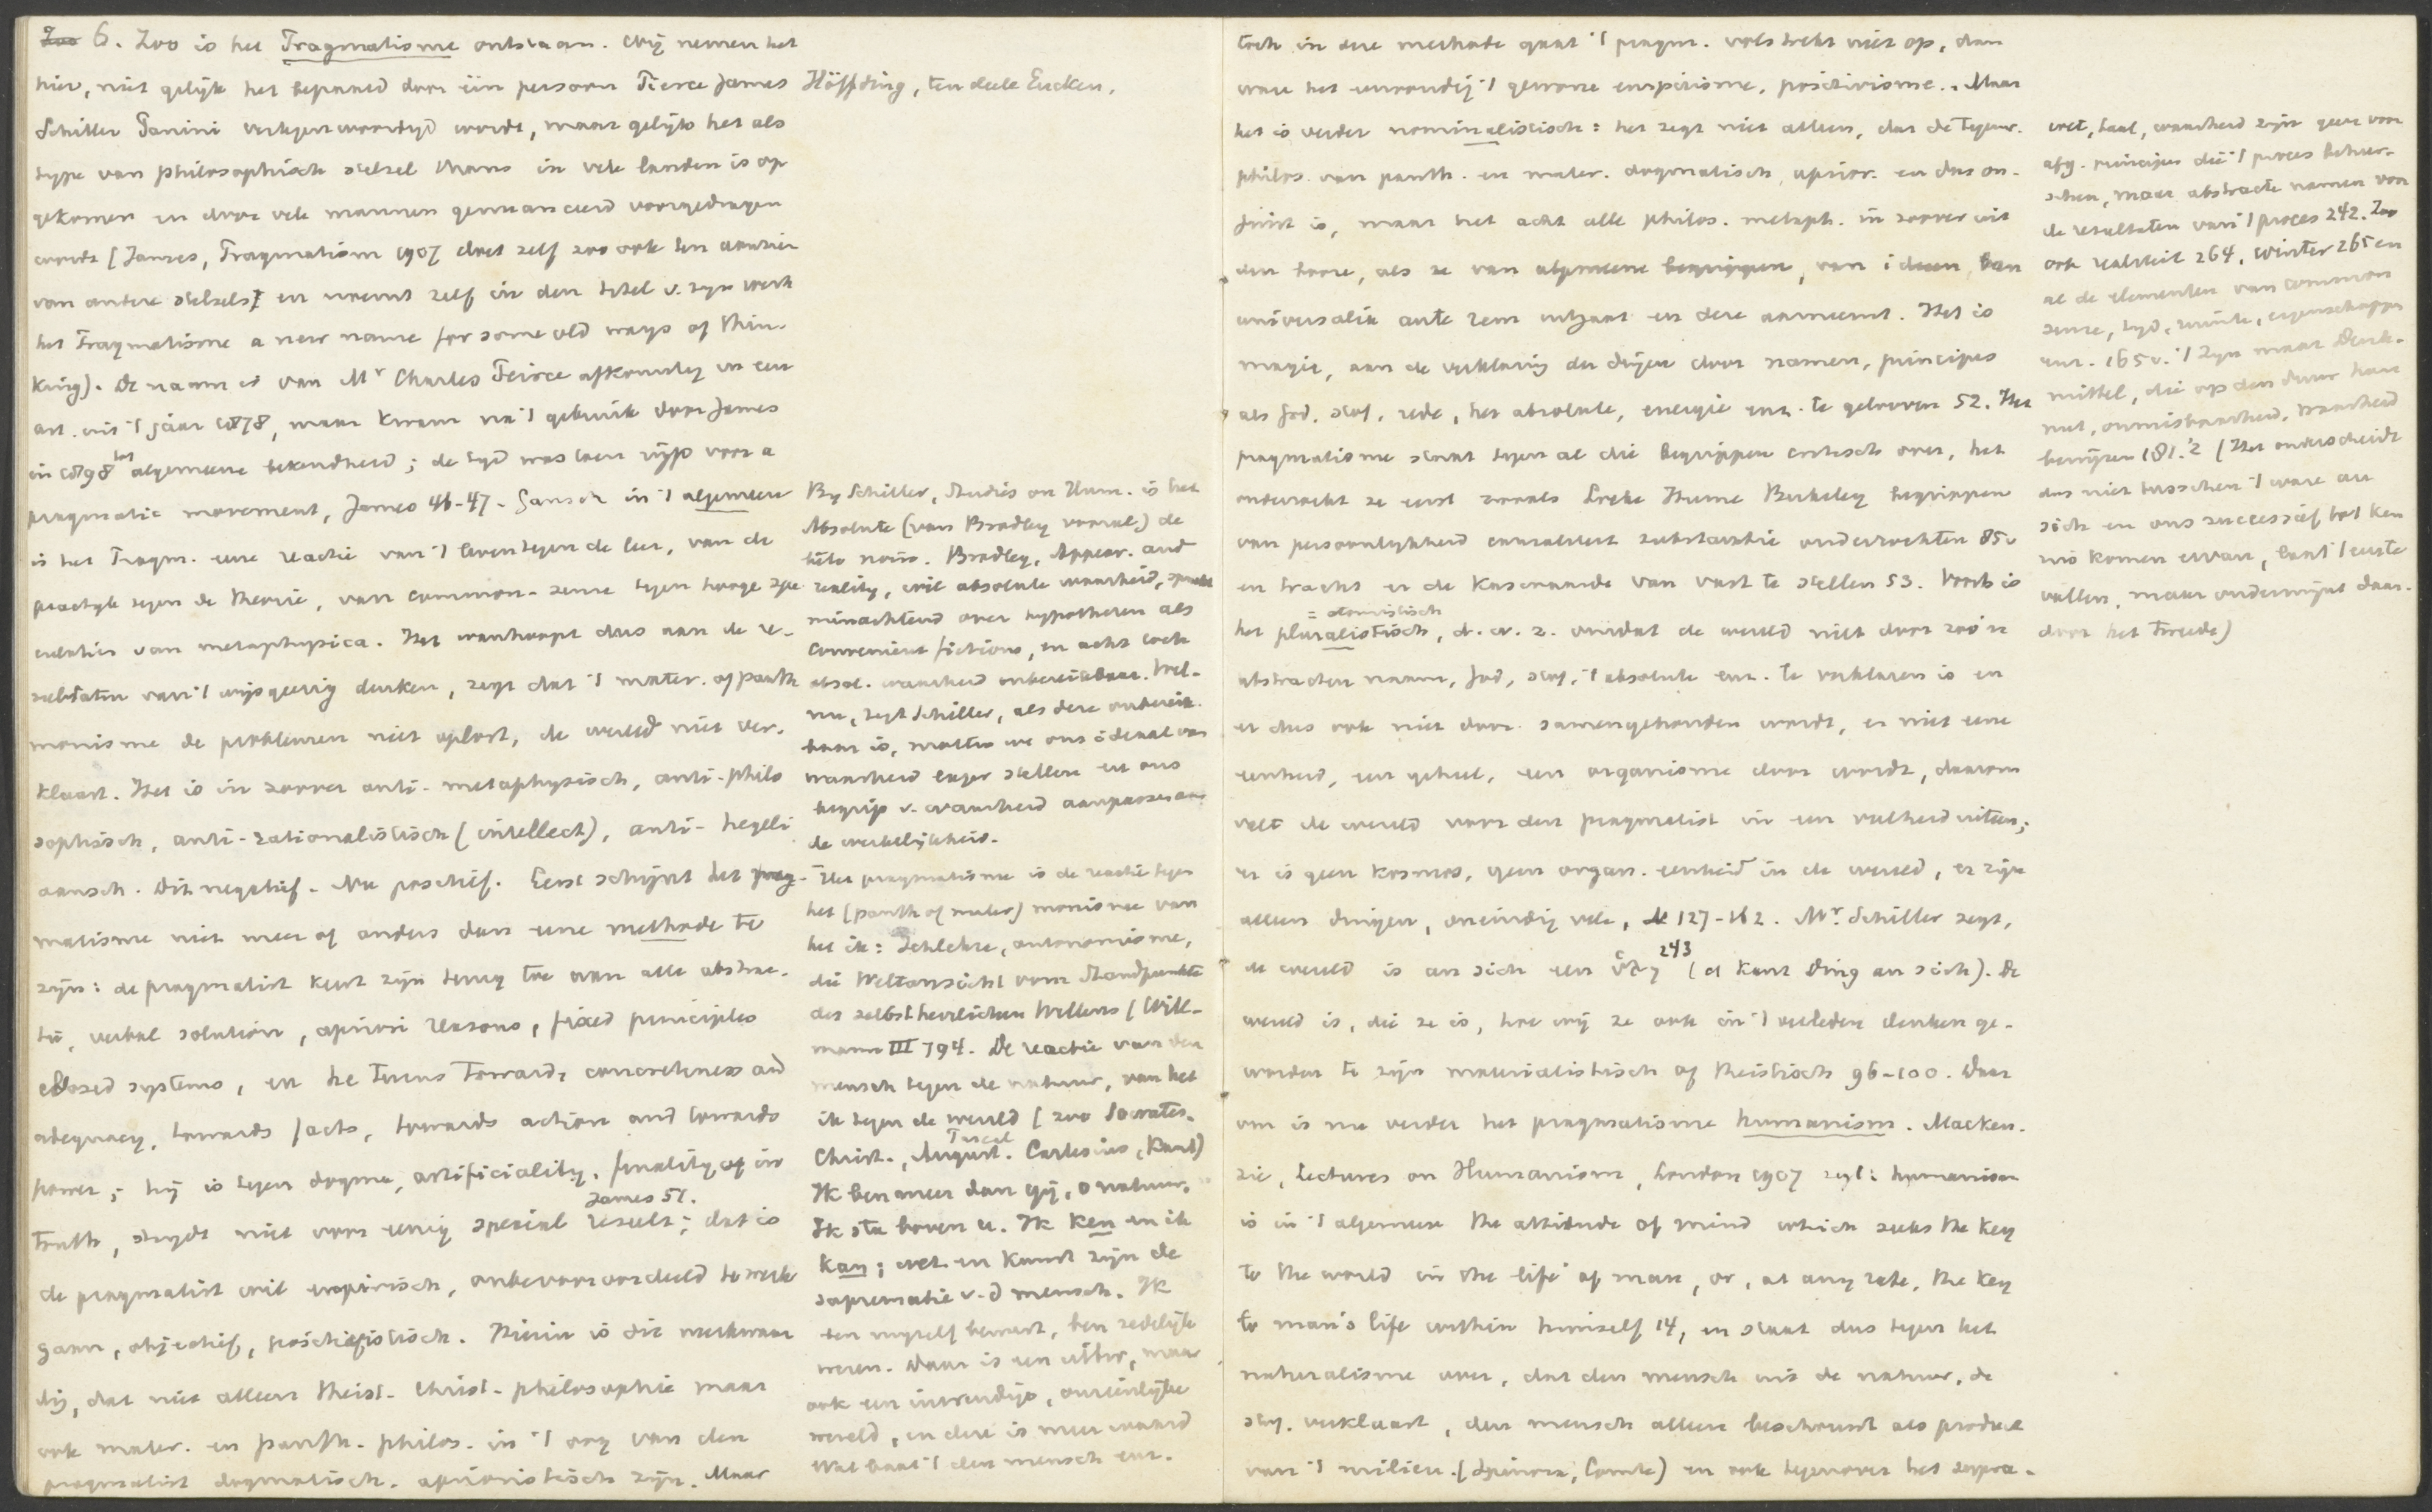 6. Zoo is het Pragmatisme ontstaan. Wij nemen het
hier, niet gelijk het bepaald door één persoon Pierce James
Schiller Papini vertegenwoordigd wordt, maar gelijk het als
type van philosophisch stelsel thans in vele landen is op
gekomen en door vele mannen genuanceerd voorgedragen
wordt [James, Pragmatism 1907 doet zelf zoo ook ten aanzien
van andere stelsels] en noemt zelf in den titel v. zijn werk
het Pragmatisme a new name for some old ways of thin-
king). De naam is van Mr Charles Peirce afkomstig in een
art. uit 't jaar 1878, maar kwam na 't gebruik door James
in 1898 tot algemeene bekendheid; de tijd was toen rijp voor a
pragmatic movement, James 46-47. Gansch in 't algemeen
is het Pragm. eene reactie van 't leven tegen de leer, van de
practijk tegen de theorie, van common-sense tegen hooge spe
culatiën van metaphysica. Het wanhoopt dus aan de re-
sultaten van 't wijsgeerig denken, zegt dat 't mater. of panth
monisme de problemen niet oplost, de wereld niet ver-
klaart. Het is in zoover anti-metaphysisch, anti-philo
sophisch, anti-rationalistisch (intellect), anti-hegeli
aansch. Dit negatief. Nu positief. Eerst schijnt het prag-
matisme niet meer of anders dan eene methode te
zijn: de pragmatist keert zijn rug toe aan alle abstrac-
tie, verbal solution, apriori reasons, fixed principles
closed systems, en he turns towards concreteness and
adequacy, towards facts, towards action and towards
power; hij is tegen dogma, artificiality, finality of in
truth, strijdt niet voor eenig special result; James 51. dat is
de pragmatist wil empirisch, onbevooroordeeld te werk
gaan, objectief, positivistisch. Hierin is dit merkwaar
dig, dat niet alleen theist. Christ. philosophie maar
ook mater. en panth. philos. in 't oog van den
pragmatist dogmatisch, aprioristisch zijn. Maar
Höffding, ten deele Eucken.
By Schiller, Studies on Hum. is het
Absolute (van Bradley vooral) de
bête noire. Bradley, Appear. and
reality, wil absolute waarheid, spreekt
minachtend over hypothesen als
convenient fictions, en acht toch
absol. waarheid onbereikbaar. Wel-
nu, zegt Schiller, als deze onbereik
baar is, moeten we ons ideaal van
waarheid lager stellen en ons
begrip v. waarheid aanpassen aan
de werkelijkheid.
Het pragmatisme is de reactie tegen
het (panth of mater) monisme van
het ik: Ichlehre, autonomisme,
die Weltansicht vom Standpunkte
des selbstherrlichen Willens (Will-
mann III 794. De reactie van den
mensch tegen de natuur, van het
ik tegen de wereld [zoo Socrates.
Christ., August. Pascal Cartesius, Kant)
Ik ben meer dan gij, o natuur.
Ik sta boven u. Ik ken en ik
kan; wet. en kunst zijn de
suprematie v.d mensch. Ik
ben mijzelf bewust, ben zedelijk
wezen. Daar is een uitw., maar
ook een inwendige, onzienlijke
wereld, en deze is meer waard
Wat baat 't den mensch enz.
toch in deze methode gaat 't pragm. volstrekt niet op, dan
ware het eenvoudig 't gewone empirisme, positivisme. Maar
het is verder nominalistisch: het zegt niet alleen, dat de tegenw.
philos. van panth. en mater. dogmatisch, aprior. en dus on-
juist is, maar het acht alle philos. metaph. in zoover uit
den booze, als ze van algemeene begrippen, van ideeen, van
universalia ante rem uitgaat en deze aanneemt. Het is
magie, aan de verklaring der dingen door namen, principes
als God, stof, rede, het absolute, energie enz. te gelooven 52. Het
pragmatisme staat tegen al die begrippen critisch over, het
onderzoekt ze eerst zooals Locke Hume Berkeley begrippen
van persoonlijkheid causaliteit substantie onderzochten 85v
en tracht er de kaswaarde van vast te stellen 53. Voorts is
het pluralistisch, = atomistisch d.w.z. omdat de wereld niet door zoo'n
abstracten naam, God, stof, 't absolute enz. te verklaren is en
er dus ook niet door samengehouden wordt, er niet eene
eenheid, een geheel, een organisme door wordt, daarom
valt de wereld voor den pragmatist in een veelheid uiteen;
er is geen kosmos, geen organ. eenheid in de wereld, er zijn
alleen dingen, oneindig vele, 127-162. Mr. Schiller zegt,
de wereld is an sich een ὕλη 243 (cf Kant Ding an sich). De
wereld is, die ze is, hoe wij ze ook in 't verleden denken ge-
worden te zijn materialistisch of theistisch 96-100. Daar
om is nu verder het pragmatisme humanism. Macken-
zie, Lectures on Humanism, London 1907 zegt: humanism
is in 't algemeen the attitude of mind which seeks the key
to the world in the life of man, or, at any rate, the key
to man's life within himself 14, en staat dus tegen het
naturalisme over, dat den mensch uit de natuur, de
stof. verklaart, den mensch alleen beschouwt als product
van 't milieu. (Spinoza, Comte) en ook tegenover het supra-
wet, taal, waarheid zijn geen voor
afg. principes die 't proces beheer-
schen, maar abstracte namen voor
de resultaten van 't proces 242. Zoo
ook realiteit 264, winter 265 en
al de elementen van common
sense, tijd, ruimte, eigenschappen
enz. 165v. 't Zijn maar Denk-
mittel, die op den duur hun
nut, onmisbaarheid, waarheid
bewijzen 181.2 (Het onderscheidt
dus niet tusschen 't ware an
sich en ons successief tot ken
nis komen ervan, laat 't eerste
vallen, maar ondermijnt daar-
door het tweede)